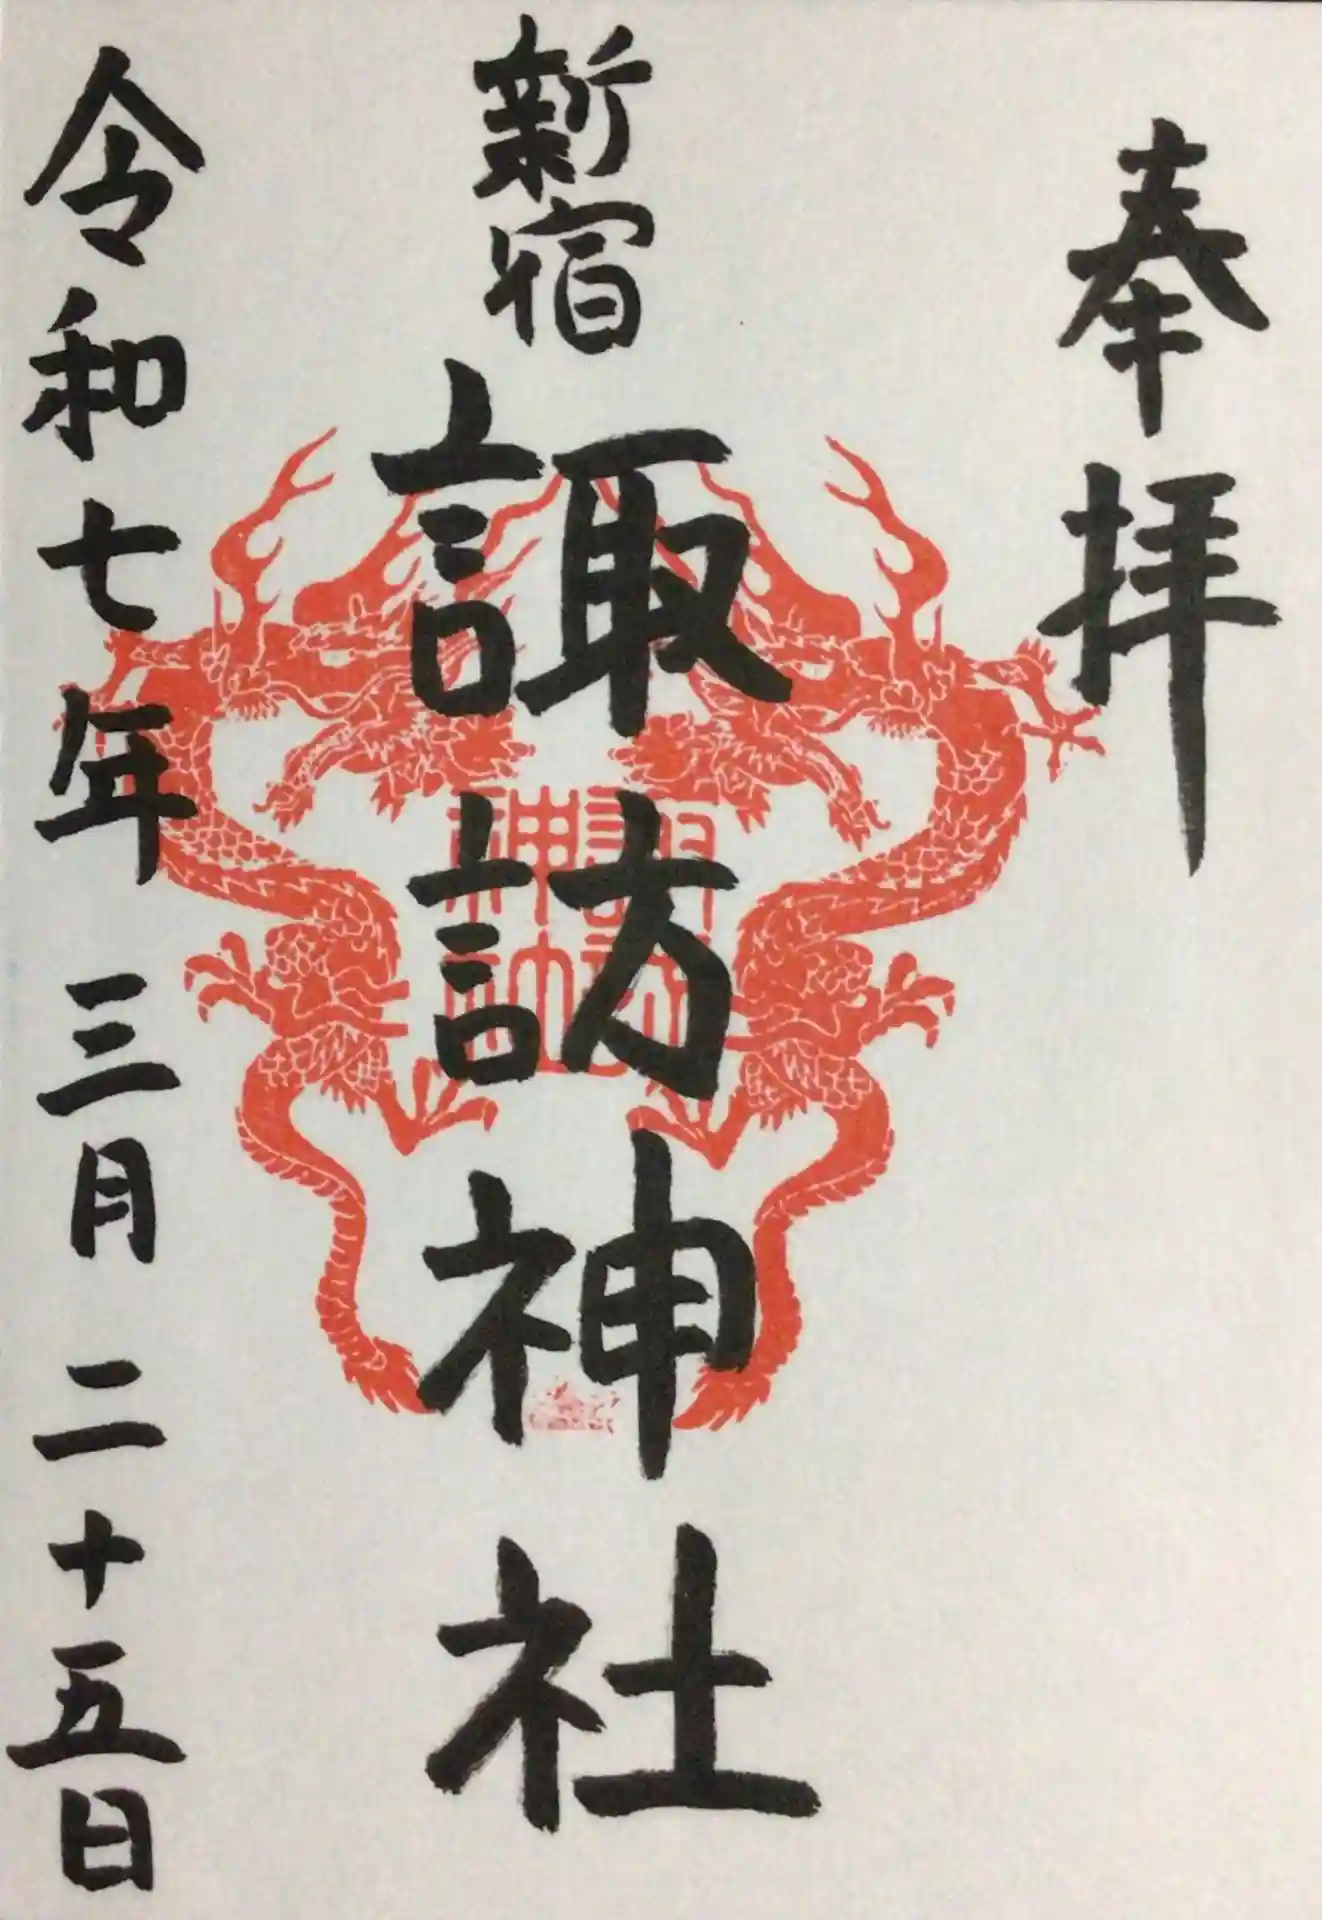 奉拝
新宿
諏訪神社
令和七年三月二十五日
諏訪
神社